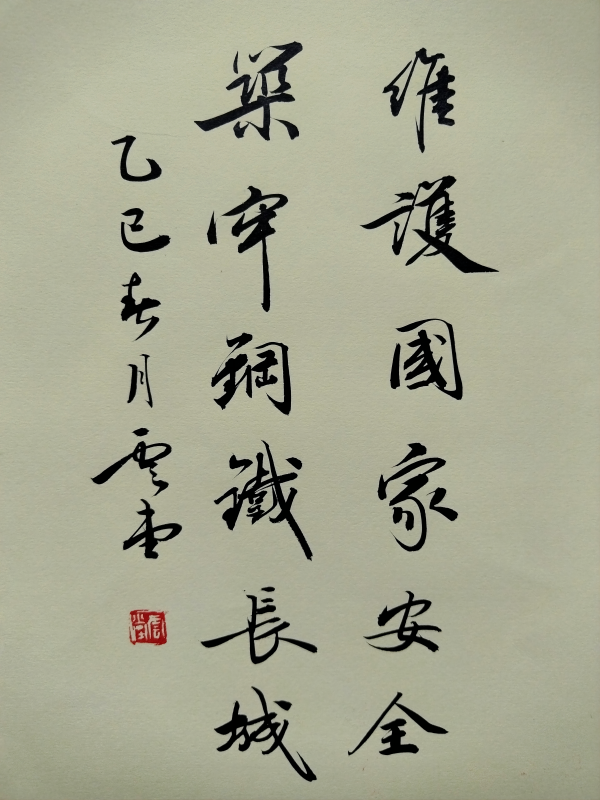 維護國家安全
築牢鋼鐵長城
乙巳春月雲堂